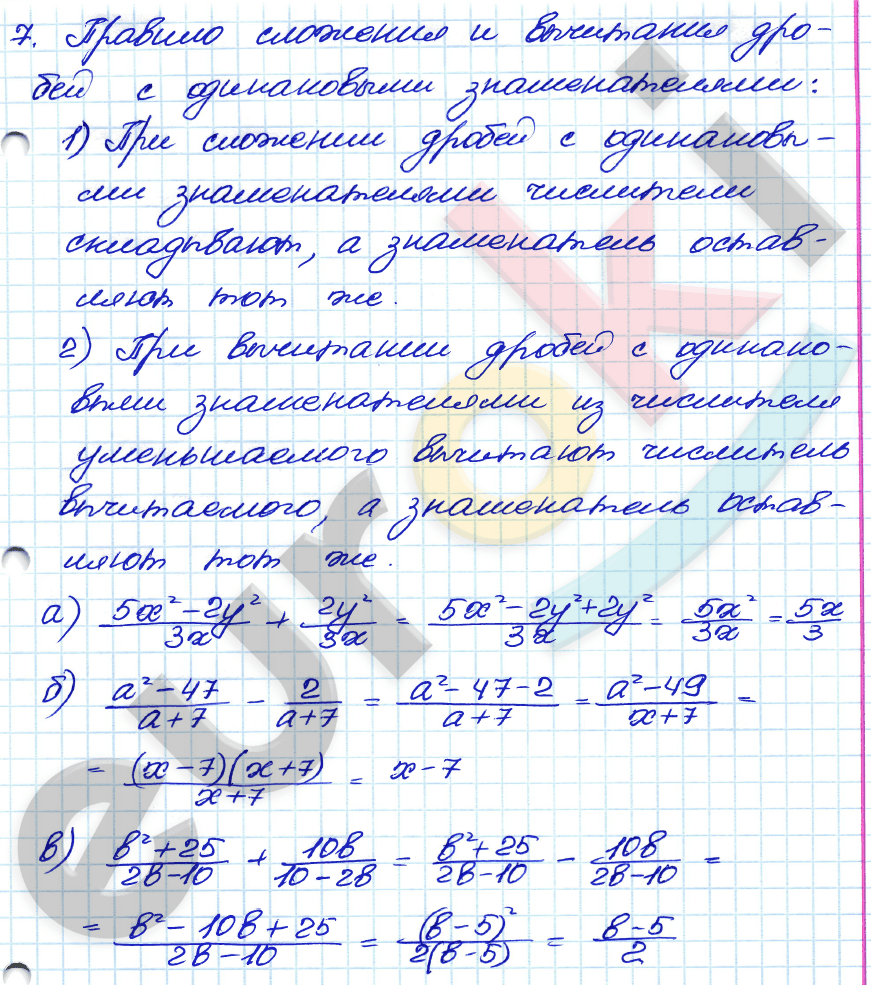 7. Правило сложения и вычитания дро-
бей с одинаковыми знаменателями:
1) При сложении дробей с одинаковы-
ми знаменателями числители
складывают, а знаменатель остав-
ляют тот же.
2) При вычитании дробей с одинако-
выми знаменателями из числителя
уменьшаемого вычитают числитель
вычитаемого, а знаменатель остав-
ляют тот же.
а) (5x² - 2y²)/(3x) + (2y²)/(3x) = (5x² - 2y² + 2y²)/(3x) = (5x²)/(3x) = (5x)/3
б) (a² - 47)/(a + 7) - 2/(a + 7) = (a² - 47 - 2)/(a + 7) = (a² - 49)/(x + 7) =
= ((x - 7)(x + 7))/(x + 7) = x - 7
в) (b² + 25)/(2b - 10) + (10b)/(10 - 2b) = (b² + 25)/(2b - 10) - (10b)/(2b - 10) =
= (b² - 10b + 25)/(2b - 10) = ((b - 5)²)/(2(b - 5)) = (b - 5)/2
euroki